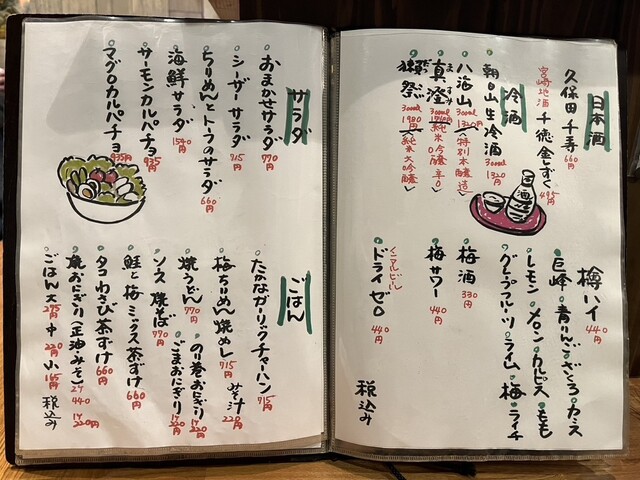 日本酒
久保田 千寿 660円
宮崎地酒 千徳 金しずく 495円
冷酒
朝日山 生冷酒 300ml 1320円
八海山 300ml 1320円 (特別本醸造)
真澄 300ml (純米吟醸辛口)
獺祭 300ml 1980円 (純米大吟醸)
樽ハイ 440円
巨峰・青りんご・ざくろ・カシス
レモン・メロン・カルピス・もも
グレープフルーツ・ライム・梅・ライチ
梅酒 330円
梅サワー 440円
ノンアルビール
ドライゼロ 440円
税込み
サラダ
おまかせサラダ 770円
シーザーサラダ 715円
ちりめんとトーフのサラダ 660円
海鮮サラダ 1540円
サーモンカルパチョ 935円
マグロカルパチョ 935円
ごはん
たかながーリックチャーハン 715円
梅ちりめん焼めし 715円 みそ汁 220円
焼うどん 770円 のり巻おにぎり 1ケ 220円
ソース焼そば 770円 ごまおにぎり 1ケ 220円
鮭と梅ミックス茶ずけ 660円
タコわさび茶ずけ 660円
焼おにぎり(正油・みそ) 2ケ 440 1ケ 220円
ごはん 大 275円 中 220円 小 165円 税込み